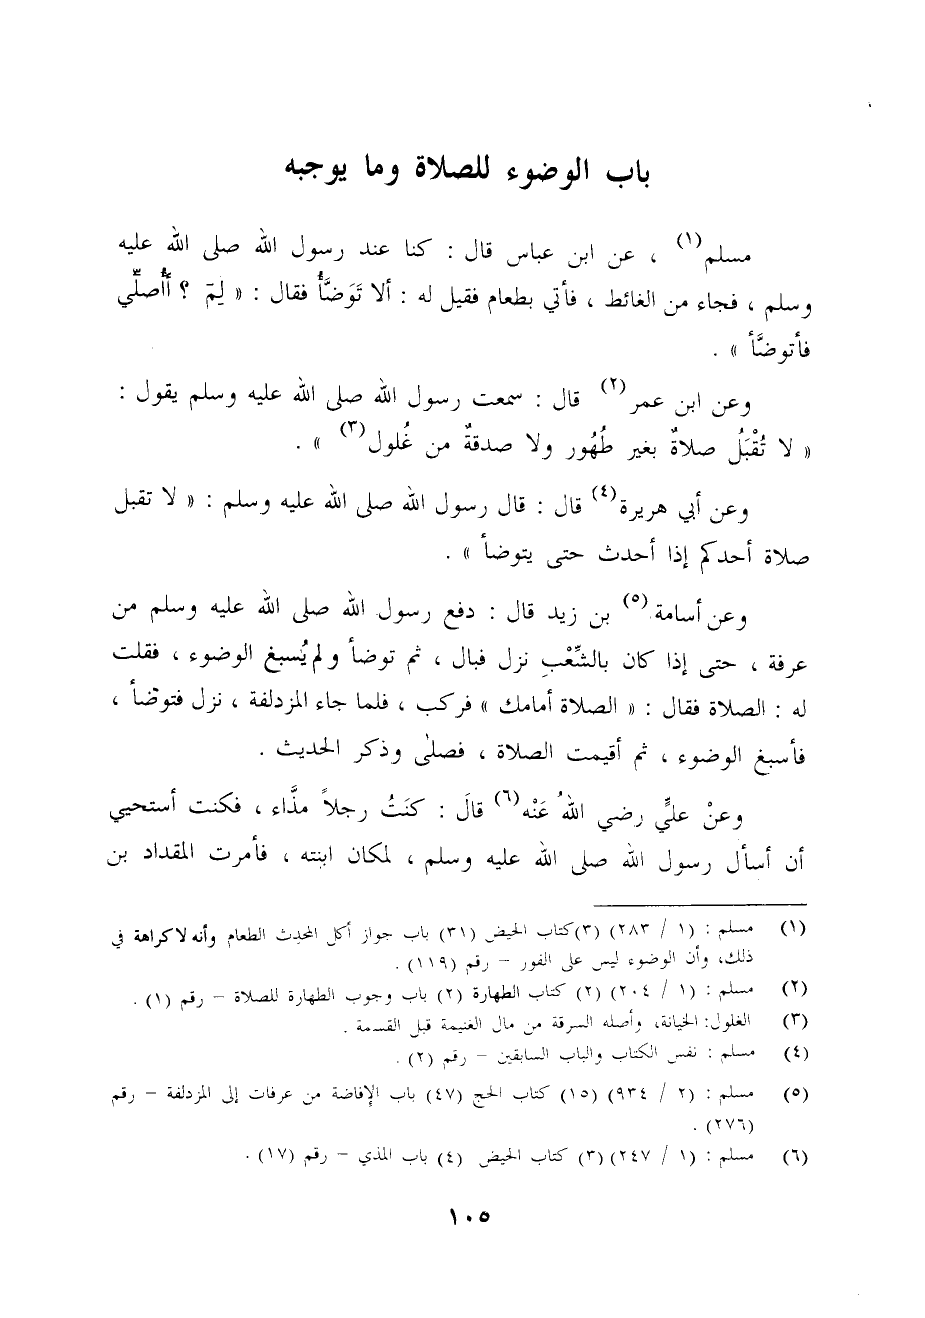 باب الوضوء للصلاة وما يوجبه
مسلم(١) ، عن ابن عباس قال : كنا عند رسول الله صلى الله عليه
وسلم ، فجاء من الغائط ، فأتي بطعام فقيل له : ألا تَوَضَّأُ فقال : « لِمَ ؟ أَأُصلِّي
فأتوضَّأ » .
وعن ابن عمر(٢) قال : سمعت رسول الله صلى الله عليه وسلم يقول :
« لا تُقْبَلُ صلاةٌ بغير طُهُور ولا صدقةٌ من غُلول(٣) » .
وعن أبي هريرة(٤) قال : قال رسول الله صلى الله عليه وسلم : « لا تقبل
صلاة أحدكم إذا أحدث حتى يتوضأ » .
وعن أسامة(٥) بن زيد قال : دفع رسول الله صلى الله عليه وسلم من
عرفة ، حتى إذا كان بالشِّعْبِ نزل فبال ، ثم توضأ ولم يُسبغ الوضوء ، فقلت
له : الصلاة فقال : « الصلاة أمامك » فركب ، فلما جاء المزدلفة ، نزل فتوضأ ،
فأسبغ الوضوء ، ثم أقيمت الصلاة ، فصلى وذكر الحديث .
وعنْ عليٍّ رضي اللهُ عَنْه(٦) قالَ : كنَتُ رجلاً مذَّاء ، فكنت أستحيي
أن أسأل رسول الله صلى الله عليه وسلم ، لمكان ابنته ، فأمرت المقداد بن
(١) مسلم : (١ / ٢٨٣) (٣)كتاب الحيض (٣١) باب جواز أكل المحدث الطعام وأنه لاكراهة في
ذلك، وأن الوضوء ليس على الفور – رقم (١١٩) .
(٢) مسلم : (١ / ٢٠٤) (٢) كتاب الطهارة (٢) باب وجوب الطهارة للصلاة – رقم (١) .
(٣) الغلول: الخيانة، وأصله السرقة من مال الغنيمة قبل القسمة .
(٤) مسلم : نفس الكتاب والباب السابقين – رقم (٢) .
(٥) مسلم : (٢ / ٩٣٤) (١٥) كتاب الحج (٤٧) باب الإفاضة من عرفات إلى المزدلفة – رقم
(٢٧٦) .
(٦) مسلم : (١ / ٢٤٧) (٣) كتاب الحيض (٤) باب المذي – رقم (١٧) .
١٠٥